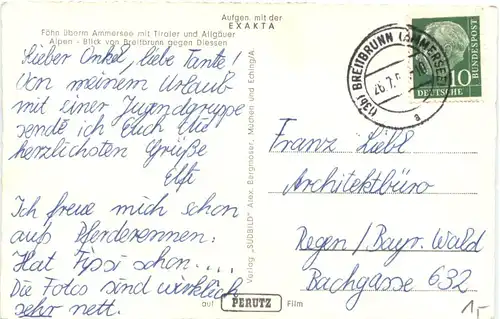 Aufgen. mit der
EXAKTA
Föhn überm Ammersee mit Tiroler und Allgäuer
Alpen - Blick von Breitbrunn gegen Diessen
Lieber Onkel, liebe Tante!
Von meinem Urlaub
mit einer Jugendgruppe
sende ich Euch die
herzlichsten Grüße
Elfi
Ich freue mich schon
aufs Pferderennen.
Hat Tipsi schon....
Die Fotos sind wirklich
sehr nett.
Verlag „SÜDBILD" Alex. Bergmoser, München und Eching/A.
auf PERUTZ Film
(13b) BREITBRUNN (AMMERSEE)
26.7.5
a
10
DEUTSCHE
BUNDESPOST
Franz Liebl
Architektbüro
Regen / Bayr. Wald
Bachgasse 632
1,-